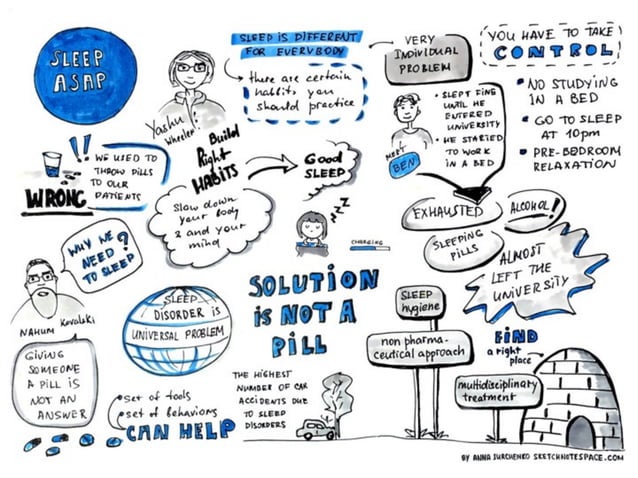 SLEEP
ASAP
Yashu
Wheeler
SLEEP IS DIFFERENT
FOR EVERYBODY
there are certain
habits you
should practice
VERY
INDIVIDUAL
PROBLEM
YOU HAVE TO TAKE
CONTROL
• NO STUDYING
IN A BED
• GO TO SLEEP
AT 10pm
• PRE-BEDROOM
RELAXATION
MEET
BEN
• SLEPT FINE
UNTIL HE
ENTERED
UNIVERSITY
• HE STARTED
TO WORK
IN A BED
!!
WE USED TO
THROW PILLS
TO OUR
PATIENTS
WRONG
Build
Right
HABITS
Good
SLEEP
Slow down
your body
& and your
mind
zzz
CHARGING
EXHAUSTED
ALCOHOL!
SLEEPING
PILLS
ALMOST
LEFT THE
UNIVERSITY
WHY WE
NEED
TO SLEEP
?
NAHUM Kovalski
GIVING
SOMEONE
A PILL IS
NOT AN
ANSWER
SLEEP
DISORDER IS
UNIVERSAL PROBLEM
SOLUTION
iS NOT A
PiLL
• set of tools
• set of behaviors
CAN HELP
THE HIGHEST
NUMBER OF CAR
ACCIDENTS DUE
TO SLEEP
DISORDERS
SLEEP
hygiene
non pharma-
ceutical approach
multidisciplinary
treatment
FiND
a right
place
BY ANNA IURCHENKO SKETCHNOTESPACE.COM